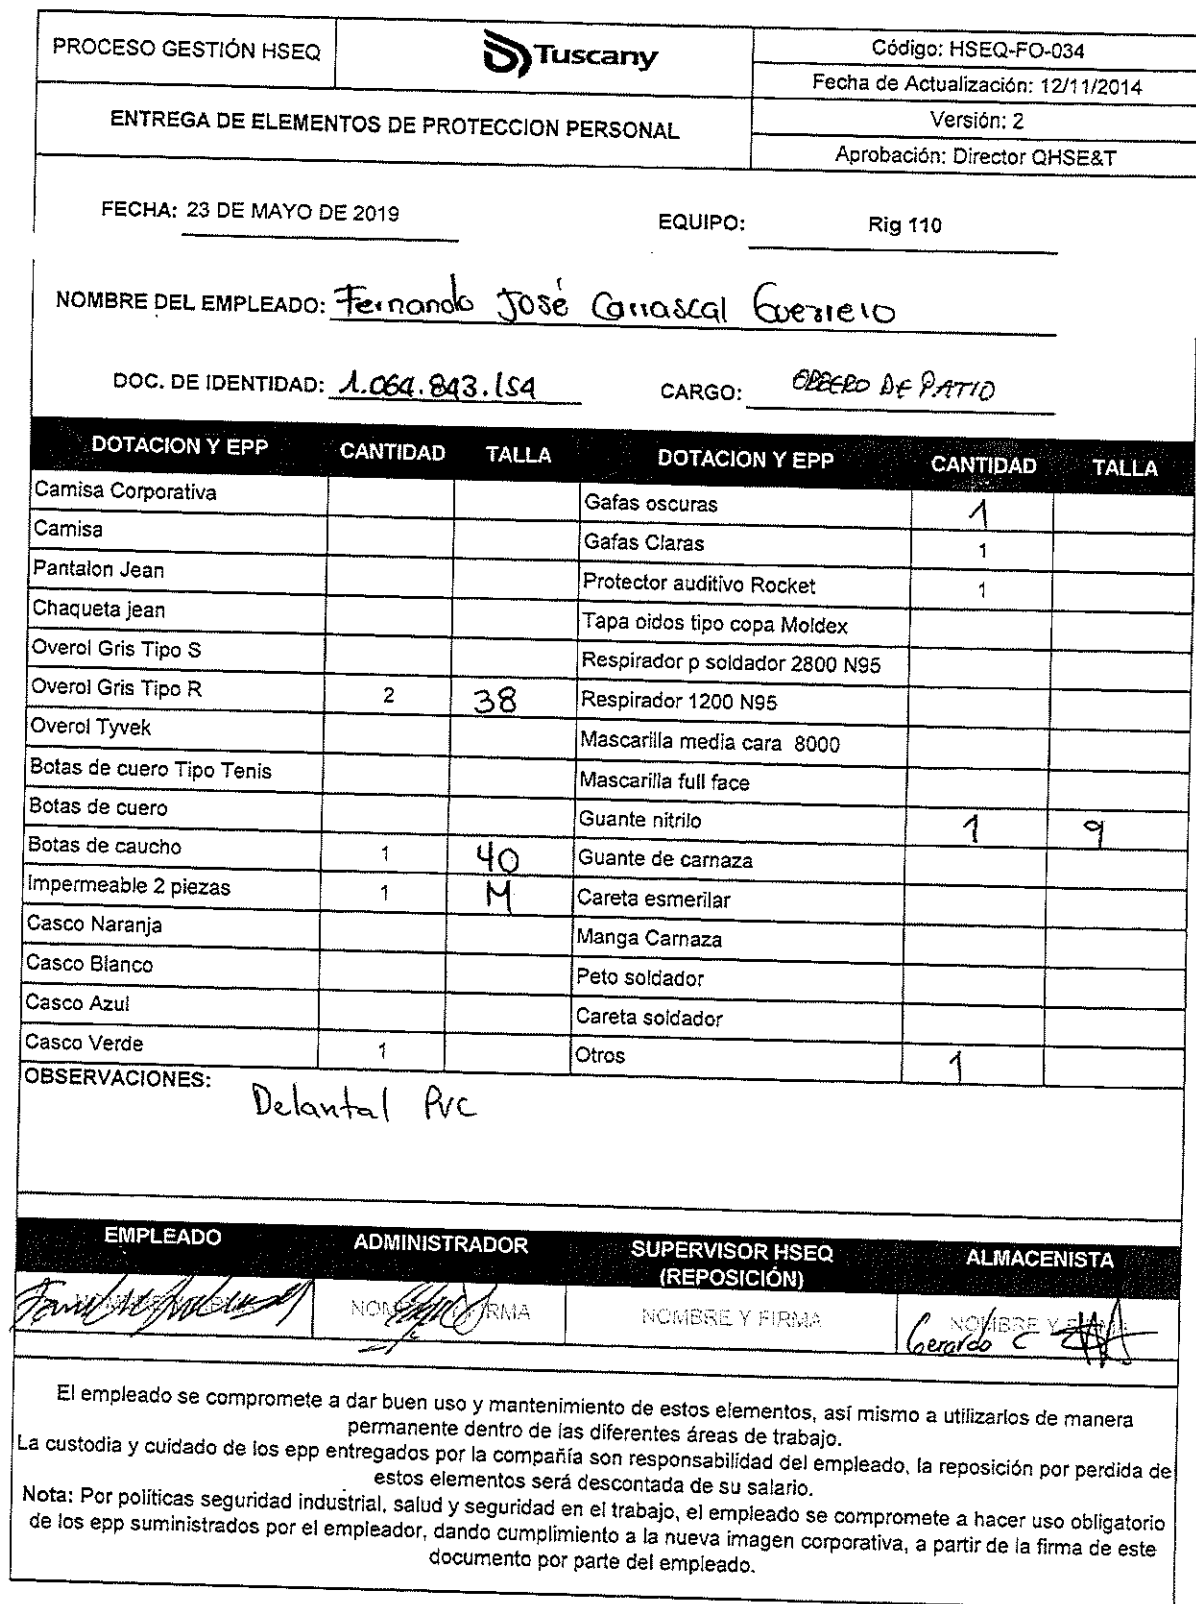 PROCESO GESTIÓN HSEQ
Tuscany
Código: HSEQ-FO-034
Fecha de Actualización: 12/11/2014
ENTREGA DE ELEMENTOS DE PROTECCION PERSONAL
Versión: 2
Aprobación: Director QHSE&T
FECHA: 23 DE MAYO DE 2019 EQUIPO: Rig 110
NOMBRE DEL EMPLEADO: Fernando José Carrascal Guerrero
DOC. DE IDENTIDAD: 1.064.843.154 CARGO: OBRERO DE PATIO
DOTACION Y EPP CANTIDAD TALLA DOTACION Y EPP CANTIDAD TALLA
Camisa Corporativa Gafas oscuras 1
Camisa Gafas Claras 1
Pantalon Jean Protector auditivo Rocket 1
Chaqueta jean Tapa oidos tipo copa Moldex
Overol Gris Tipo S Respirador p soldador 2800 N95
Overol Gris Tipo R 2 38 Respirador 1200 N95
Overol Tyvek Mascarilla media cara 8000
Botas de cuero Tipo Tenis Mascarilla full face
Botas de cuero Guante nitrilo 1 9
Botas de caucho 1 40 Guante de carnaza
Impermeable 2 piezas 1 M Careta esmerilar
Casco Naranja Manga Carnaza
Casco Blanco Peto soldador
Casco Azul Careta soldador
Casco Verde 1 Otros 1
OBSERVACIONES:
Delantal PVC
EMPLEADO ADMINISTRADOR SUPERVISOR HSEQ (REPOSICIÓN) ALMACENISTA
NOMBRE Y FIRMA NOMBRE Y FIRMA NOMBRE Y FIRMA
Gerardo C
El empleado se compromete a dar buen uso y mantenimiento de estos elementos, así mismo a utilizarlos de manera
permanente dentro de las diferentes áreas de trabajo.
La custodia y cuidado de los epp entregados por la compañía son responsabilidad del empleado, la reposición por perdida de
estos elementos será descontada de su salario.
Nota: Por politicas seguridad industrial, salud y seguridad en el trabajo, el empleado se compromete a hacer uso obligatorio
de los epp suministrados por el empleador, dando cumplimiento a la nueva imagen corporativa, a partir de la firma de este
documento por parte del empleado.